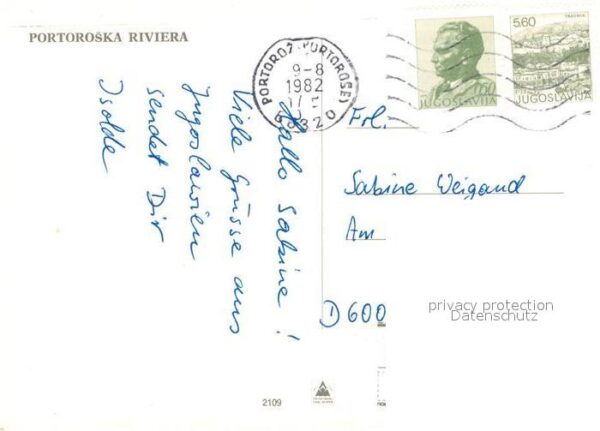 PORTOROŠKA RIVIERA
Hallo Sabine!
Viele Grüsse aus
Jugoslawien
sendet Dir
Isolde
PORTOROŽ (PORTOROSE)
9-8
1982
17
66320
JUGOSLAVIJA
5,60
TRAVNIK
JUGOSLAVIJA
Frl.
Sabine Weigand
Am
D 600
privacy protection
Datenschutz
2109